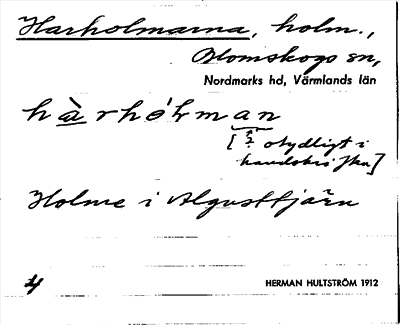 Harholmarna, holm.,
Blomskogs sn,
Nordmarks hd, Värmlands län
hàrhó̵lman
[? otydligt i
handskriften]
Holme i Algusttjärn
4
HERMAN HULTSTRÖM 1912